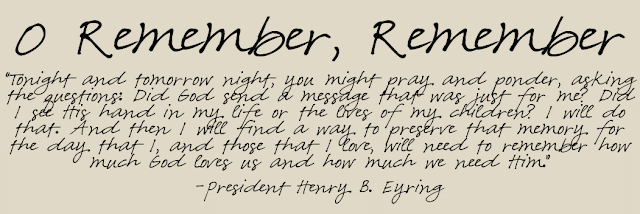 O Remember, Remember
"Tonight and tomorrow night, you might pray and ponder, asking
the questions: Did God send a message that was just for me? Did
I see His hand in my life or the lives of my children? I will do
that. And then I will find a way to preserve that memory for
the day that I, and those that I love, will need to remember how
much God loves us and how much we need Him."
-President Henry B. Eyring